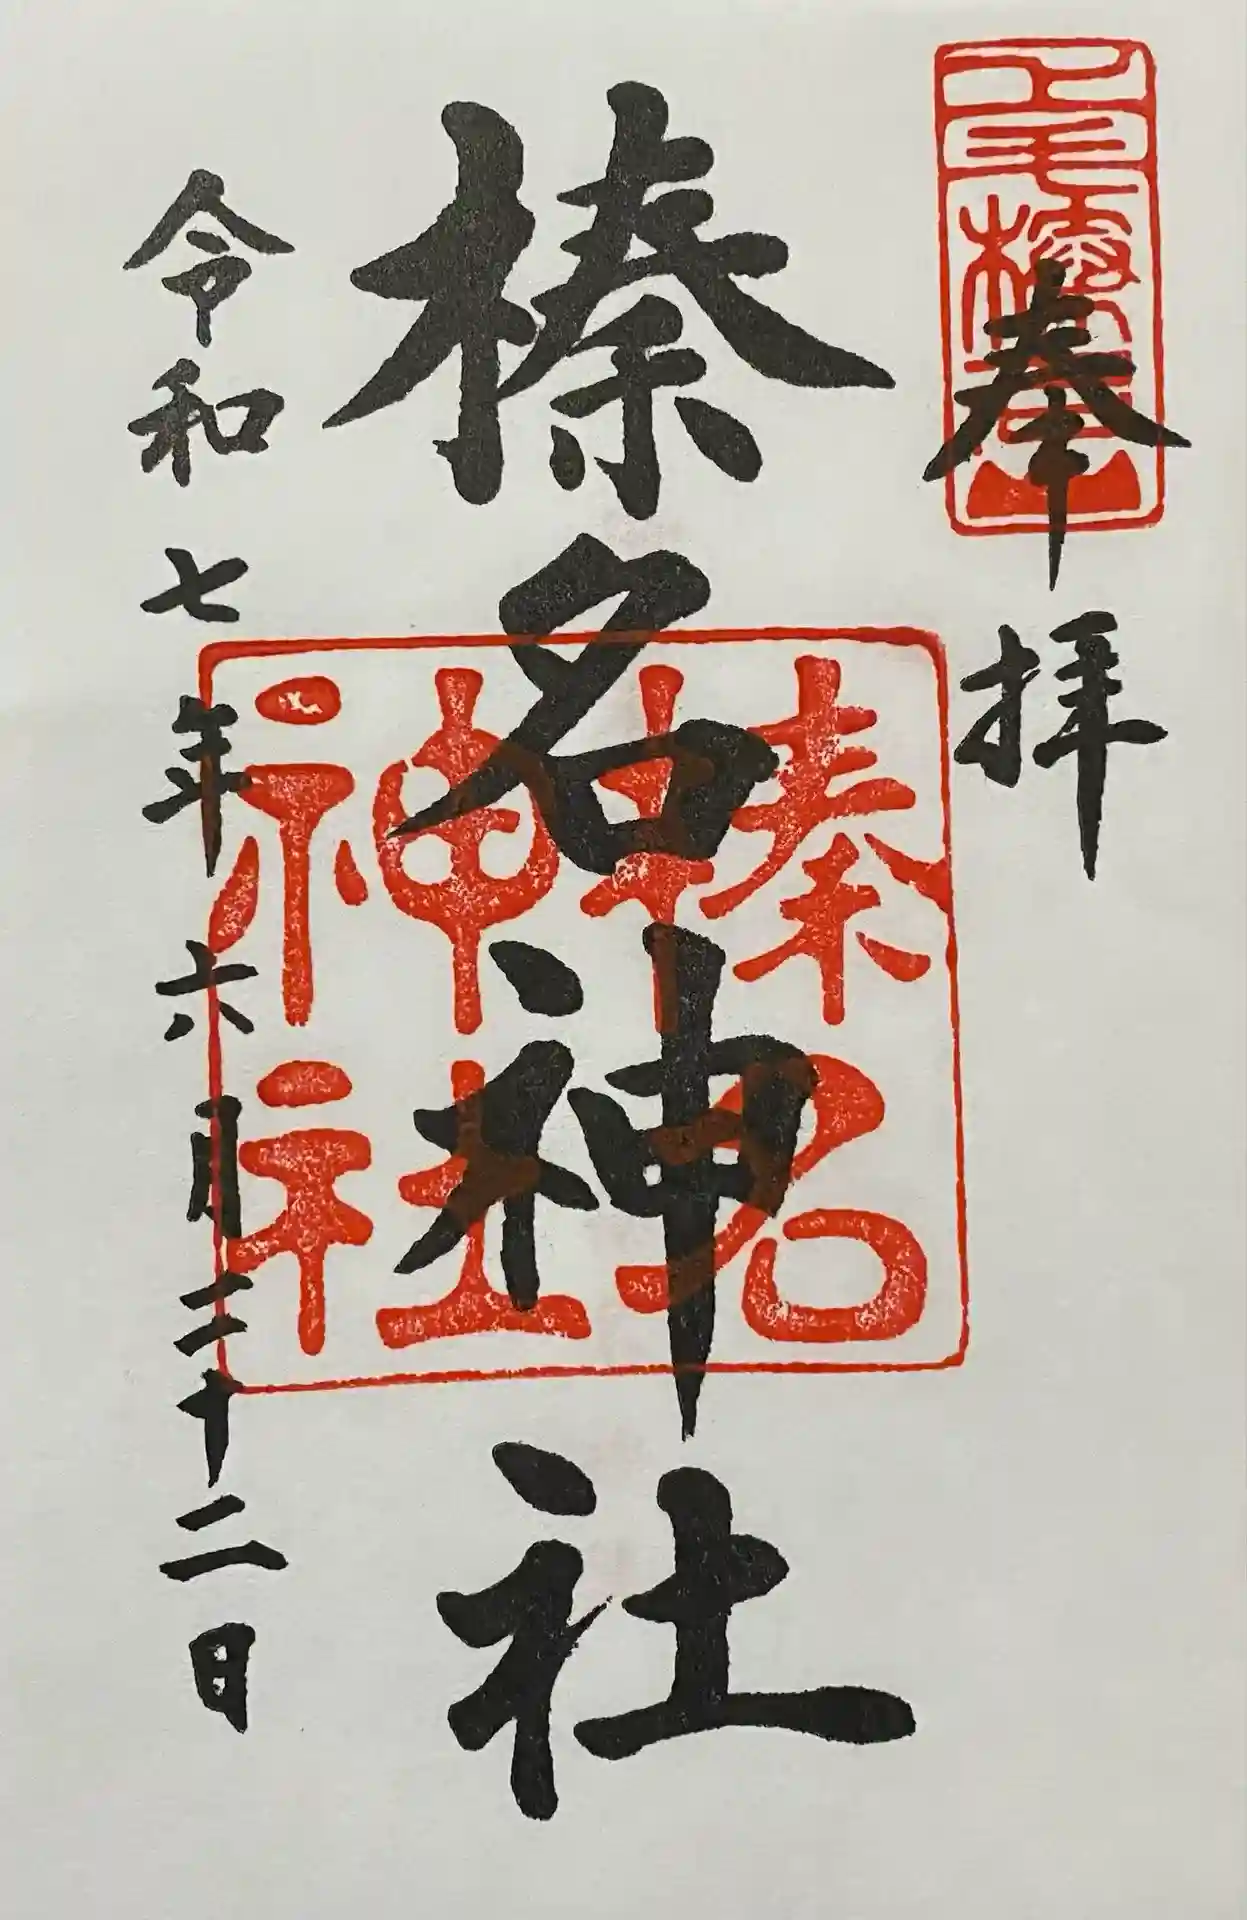 奉拝
上毛
榛名神社
榛名
神社
令和七年六月二十二日